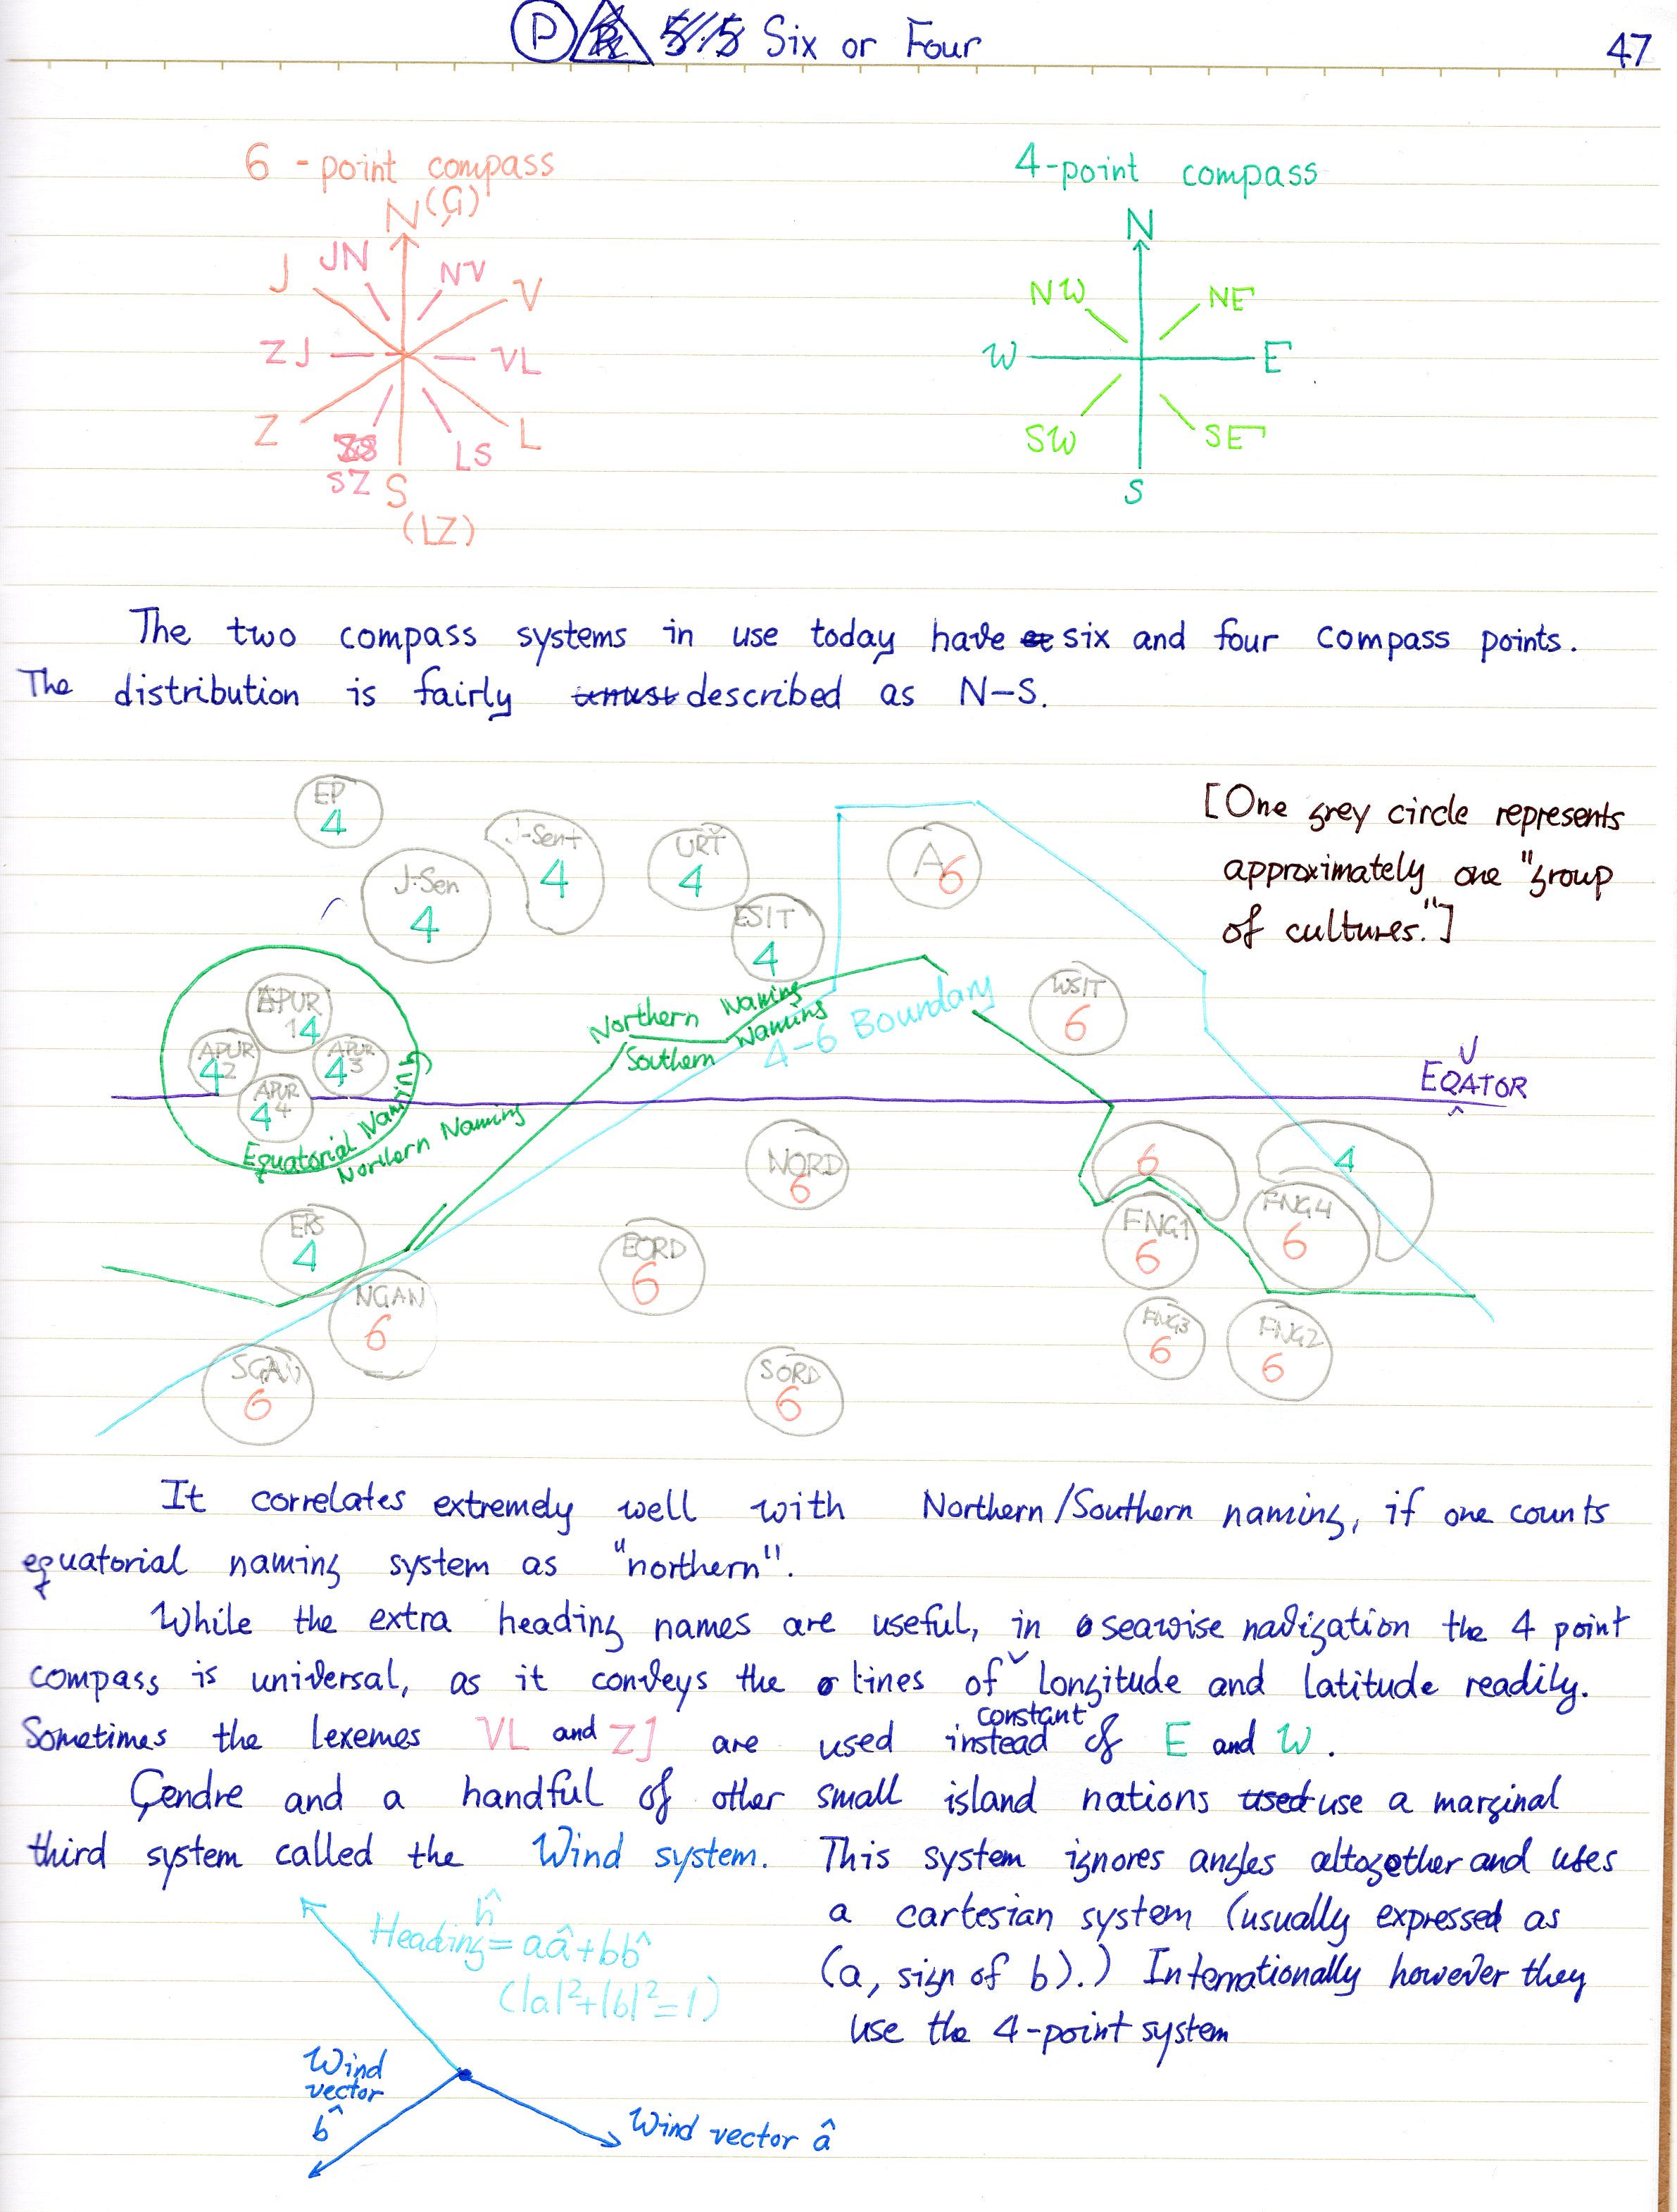 P 5/.5 Six or Four 47
6-point compass
N (Ģ)
JN NV
J V
ZJ VL
Z L
SZ S LS
(LZ)
4-point compass
N
NW NE
W E
SW SE
S
The two compass systems in use today have six and four compass points.
The distribution is fairly described as N-S.
EP
4
J-Sen
4
J-Sent
4
URT
4
ESIT
4
A 6
[One grey circle represents
approximately one "group
of cultures."]
WSIT
6
APUR
14
APUR
42
APUR
43
APUR
44
Equatorial Naming
Northern Naming
Northern Naming
Southern Naming
4-6 Boundary
EQATOR
U
NORD
6
6
4
FNG1
6
FNG4
6
4
EORD
6
NGAN
6
FNG3
6
FNG2
6
6
SORD
6
It correlates extremely well with Northern/Southern naming, if one counts
equatorial naming system as "northern".
While the extra heading names are useful, in seawise navigation the 4 point
compass is universal, as it conveys the lines of constant longitude and latitude readily.
Sometimes the lexemes VL and ZJ are used instead of E and W.
Çendre and a handful of other small island nations used use a marginal
third system called the Wind system. This system ignores angles altogether and uses
a cartesian system (usually expressed as
(a, sign of b).) Internationally however they
use the 4-point system
Heading ĥ = aâ+bb̂
(|a|²+|b|²=1)
Wind
vector
b̂
Wind vector â